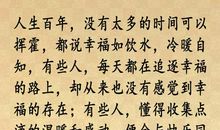 人生百年，没有太多的时间可以
挥霍，都说幸福如饮水，冷暖自
知，有些人，每天都在追逐幸福
的路上，却从来也没有感觉到幸
福的存在；有些人，懂得收集点
滴的温暖和感动，便会